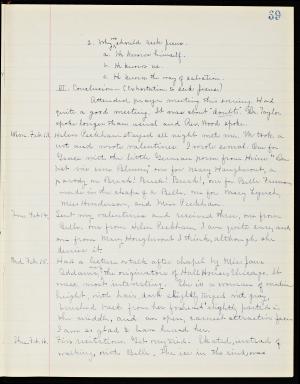 39
2. Why should seek Jesus.
a. He knows himself.
b. He knows us.
c. He knows the way of salvation.
III. Conclusion - (Exhortation to seek Jesus)
Attended prayer meeting this evening. Had
quite a good meeting. It was about "doubt". Dr. Taylor
spoke longer than usual and Rev. Wood spoke.
Mon. Feb. 13. Helen Peckham stayed all night with me. We took a
cut and wrote valentines. I wrote several. One for
with the little German poem from Heine "Du
bist wie eine Blume," one for Mary Houghwout, a
parody on Break! Break! Break!, one for Belle
made in the shape of a Bell, one for Mary Lynch,
Miss Henderson, and Miss Peckham.
Tues. Feb. 14. Sent my valentines and received three, one from
Belle, one from Helen Peckham I am quite sure, and
one from Mary Houghwout I think, although she
denies it.
Wed. Feb. 15. Had a lecture &c after chapel by Miss Jane
Addams, the originators of Hull House, Chicago. It
was most interesting. She is a woman of medium
height, with hair dark slightly tinged with gray,
brushed back from her forehead slightly parted in
the middle, and an open, earnest attractive face.
I am so glad to have heard her.
Thu. Feb. 16. Fire recitations. Get very tired. Skated, instead of
walking, with Belle. The ice in the sink was